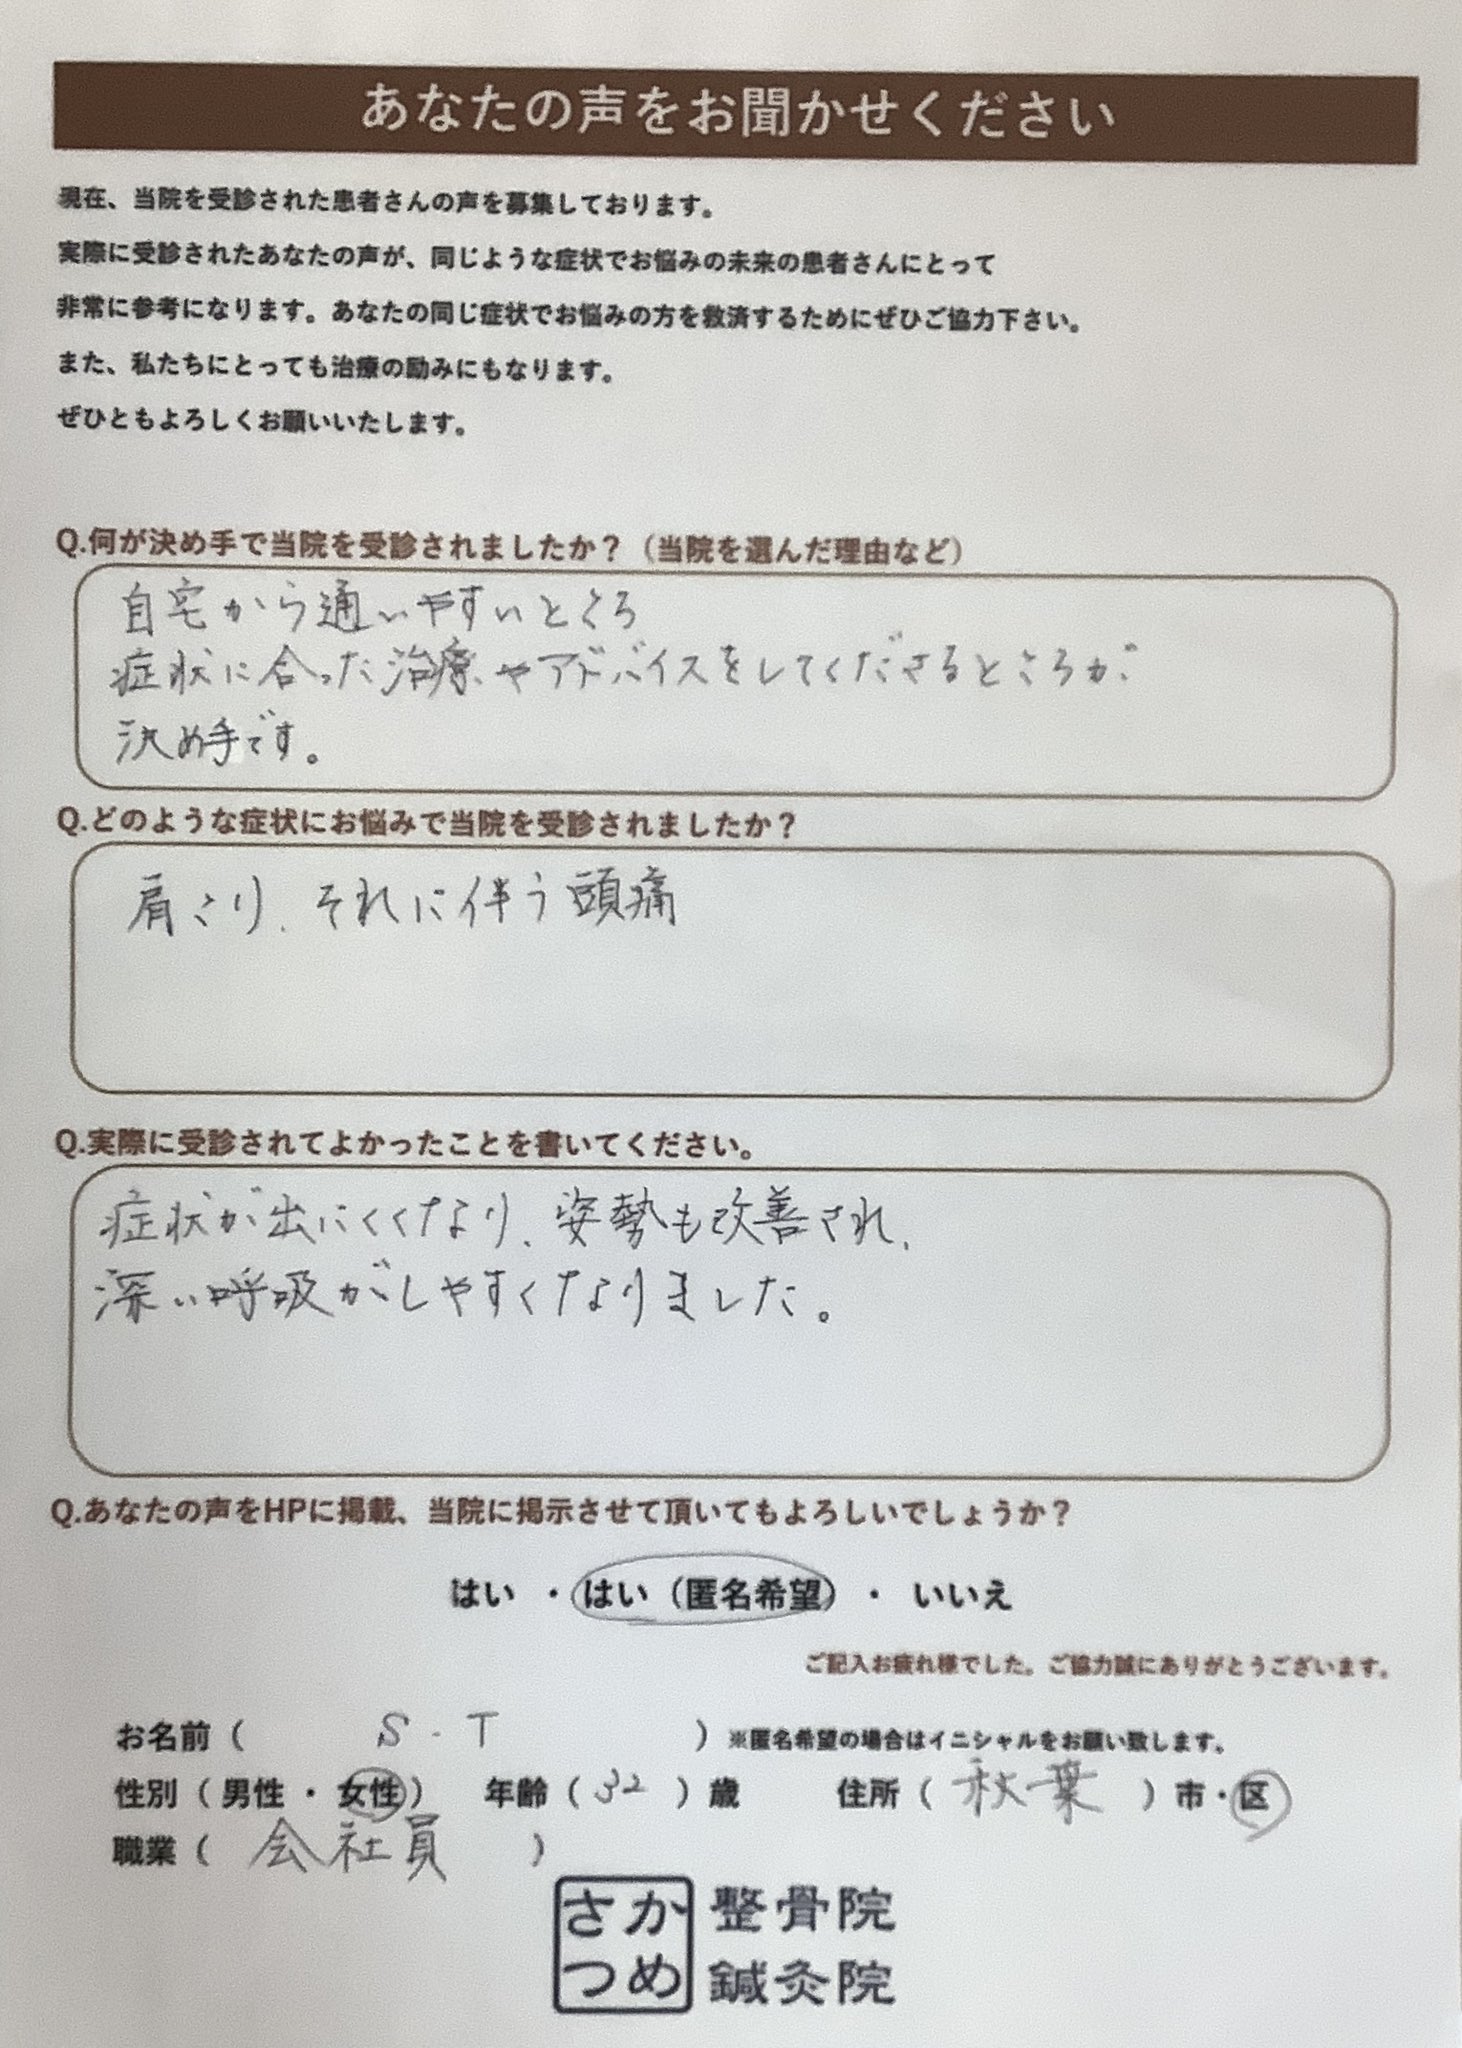 あなたの声をお聞かせください
現在、当院を受診された患者さんの声を募集しております。
実際に受診されたあなたの声が、同じような症状でお悩みの未来の患者さんにとって
非常に参考になります。あなたの同じ症状でお悩みの方を救済するためにぜひご協力下さい。
また、私たちにとっても治療の励みにもなります。
ぜひともよろしくお願いいたします。
Q.何が決め手で当院を受診されましたか？（当院を選んだ理由など）
自宅から通いやすいところ
症状に合った治療やアドバイスをしてくださるところが
決め手です。
Q.どのような症状にお悩みで当院を受診されましたか？
肩こり、それに伴う頭痛
Q.実際に受診されてよかったことを書いてください。
症状が出にくくなり、姿勢も改善され、
深い呼吸がしやすくなりました。
Q.あなたの声をHPに掲載、当院に掲示させて頂いてもよろしいでしょうか？
はい ・ はい（匿名希望） ・ いいえ
ご記入お疲れ様でした。ご協力誠にありがとうございます。
お名前（ S.T ）※匿名希望の場合はイニシャルをお願い致します。
性別（男性・女性） 年齢（32）歳 住所（秋葉）市・区
職業（会社員）
さか 整骨院
つめ 鍼灸院